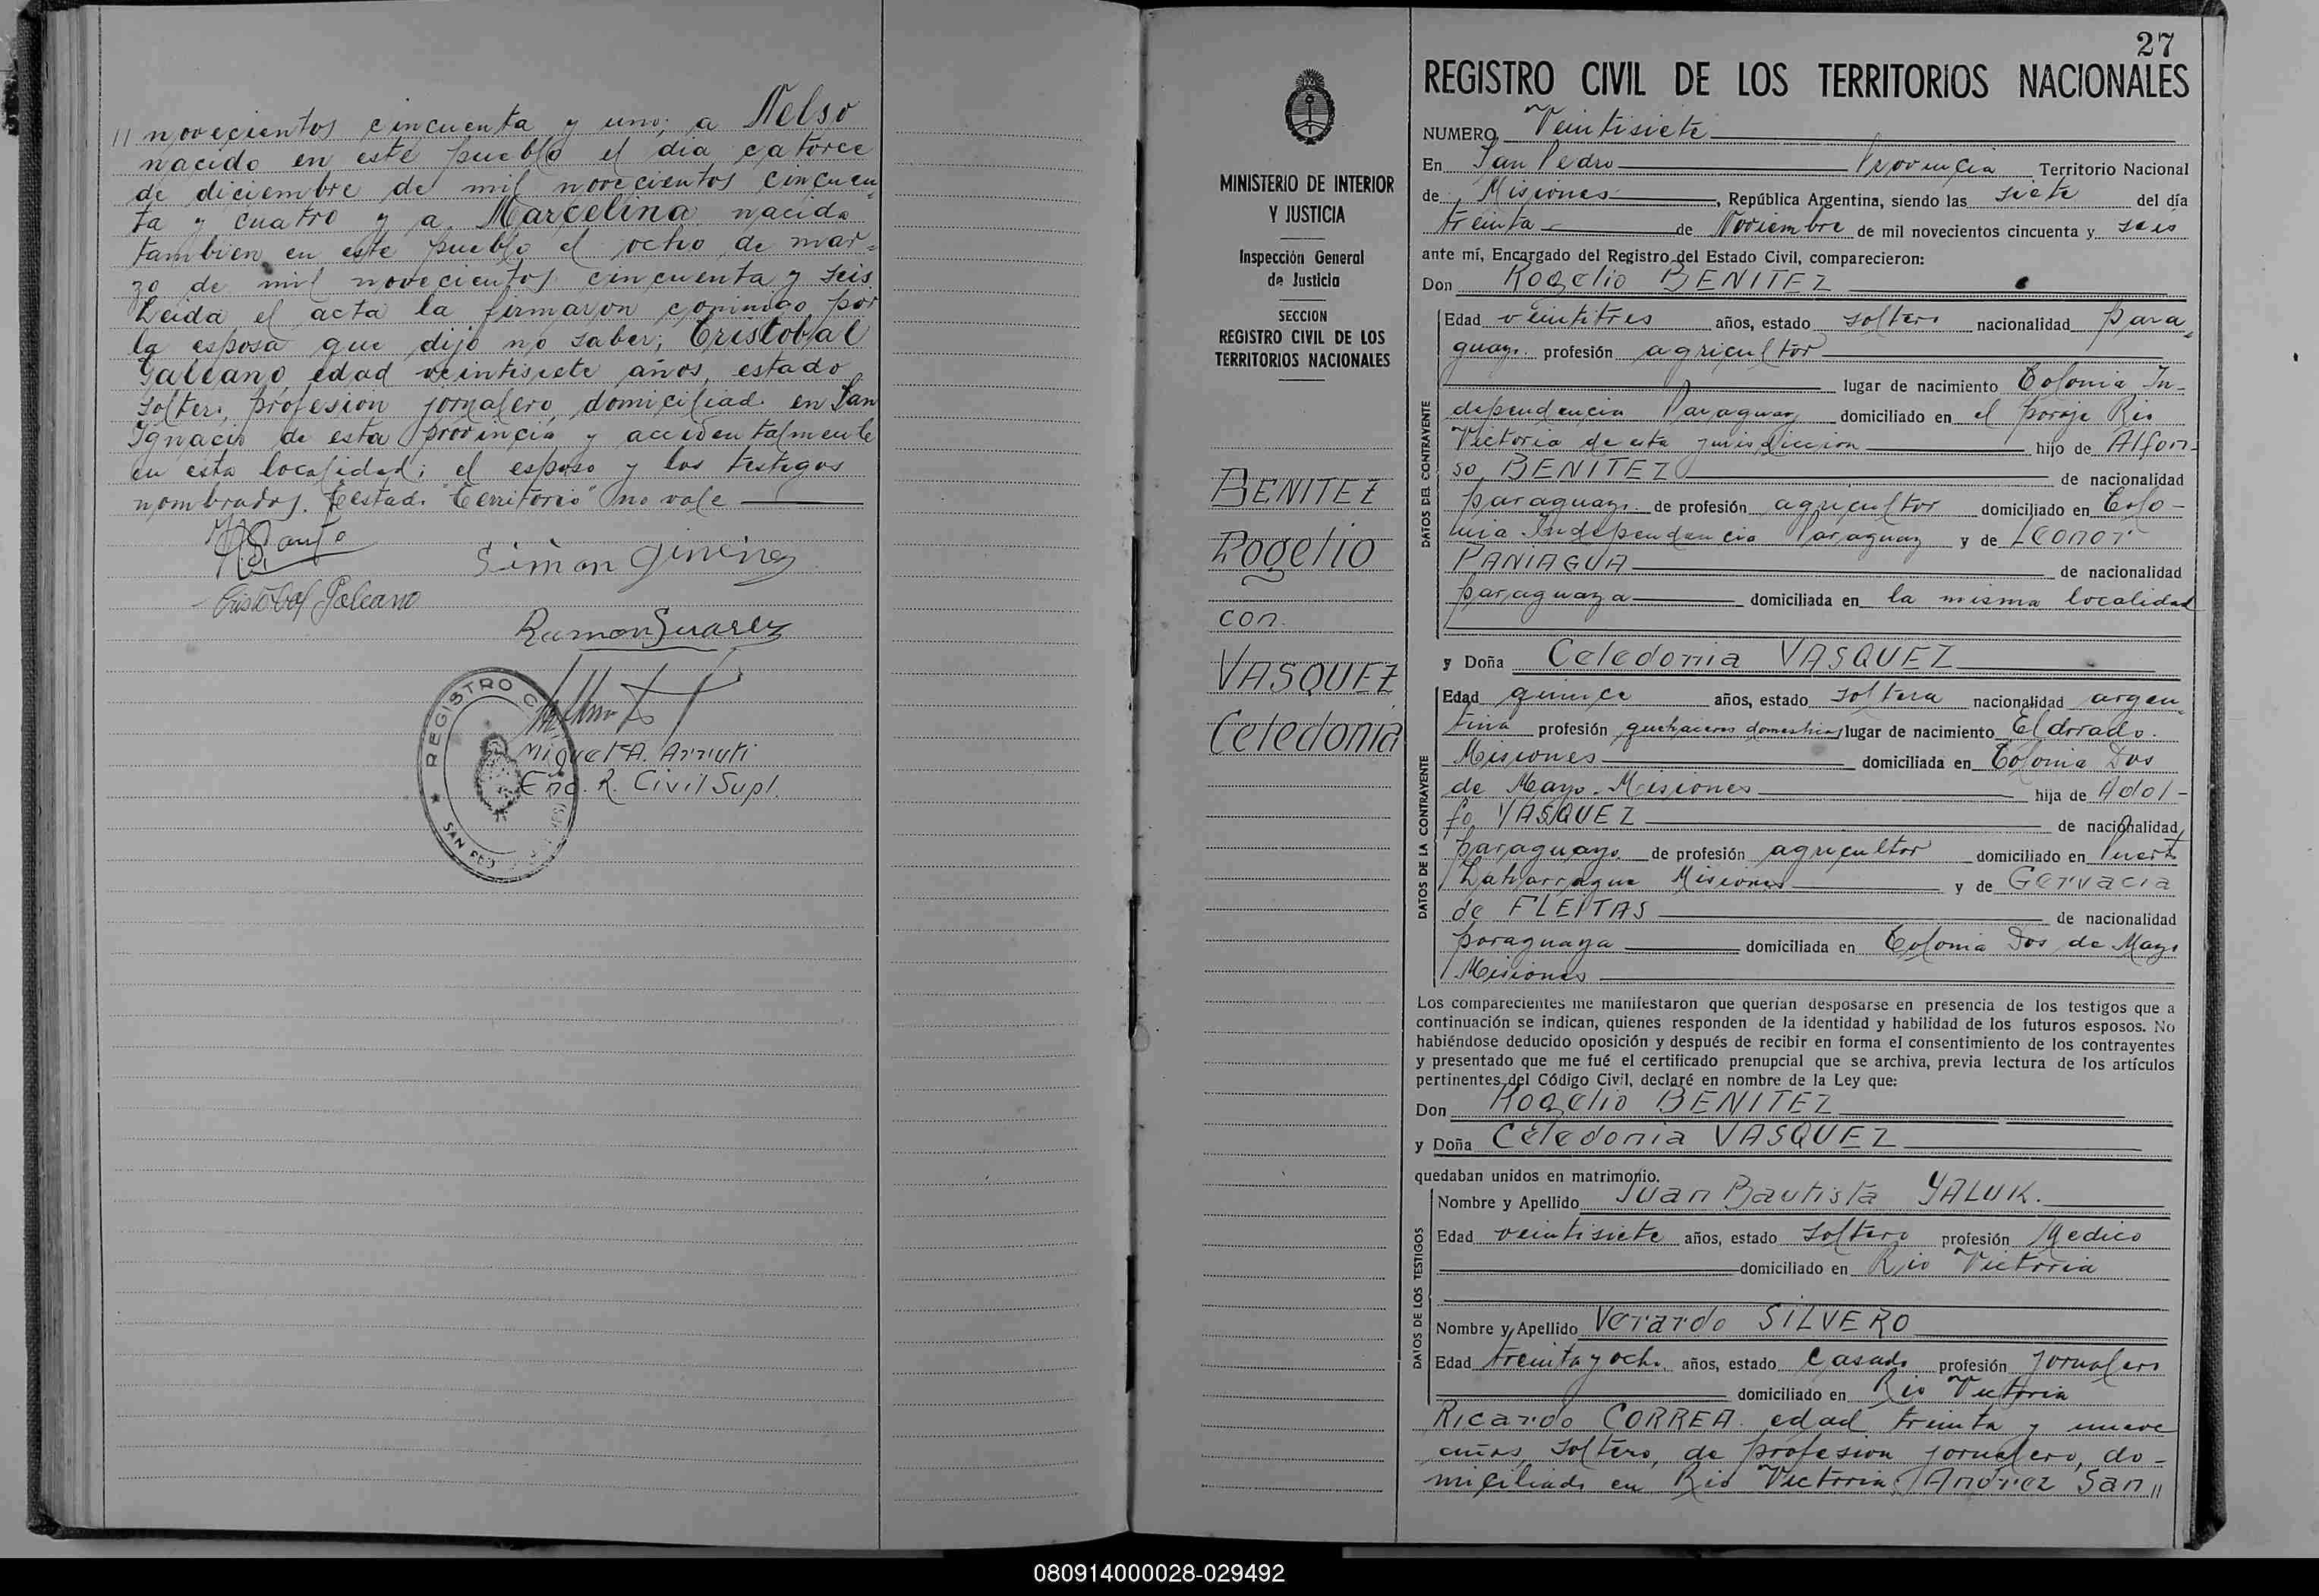 // novecientos cincuenta y uno; a Nelso
nacido en este pueblo el dia catorce
de diciembre de mil novecientos cincuen
ta y cuatro y a Marcelina nacida
tambien en este pueblo el ocho de mar=
zo de mil novecientos cincuenta y seis.
Leida el acta la firmaron conmigo por
la esposa que dijo no saber; Cristobal
Galeano, edad veintisiete años, estado
soltero, profesion jornalero, domiciliado en San
Ignacio de esta provincia y accidentalmente
en esta localidad; el esposo y los testigos
nombrados. Testado "Territorio" no vale
Simon Gimenez
Cristobal Galeano
Ramon Suarez
REGISTRO
SAN PEDRO
Miguel A. Arruti
Enc. R. Civil Supl.
MINISTERIO DE INTERIOR
Y JUSTICIA
Inspección General
de Justicia
SECCION
REGISTRO CIVIL DE LOS
TERRITORIOS NACIONALES
BENITEZ
Rogelio
con
VASQUEZ
Celedonia
27
REGISTRO CIVIL DE LOS TERRITORIOS NACIONALES
NUMERO Veintisiete
En San Pedro Provincia Territorio Nacional
de Misiones, República Argentina, siendo las siete del día
treinta de Noviembre de mil novecientos cincuenta y seis
ante mí, Encargado del Registro del Estado Civil, comparecieron:
Don Rogelio BENITEZ
DATOS DEL CONTRAYENTE
Edad veintitres años, estado soltero nacionalidad para=
guayo profesión agricultor
lugar de nacimiento Colonia In-
dependencia Paraguay domiciliado en el paraje Rio
Victoria de esta jurisdiccion hijo de Alfon-
so BENITEZ de nacionalidad
paraguayo de profesión agricultor domiciliado en Colo-
nia Independencia Paraguay y de Leonor
PANIAGUA de nacionalidad
paraguaya domiciliada en la misma localidad
y Doña Celedonia VASQUEZ
DATOS DE LA CONTRAYENTE
Edad quince años, estado soltera nacionalidad argen
tina profesión quehaceres domesticos lugar de nacimiento Eldorado.
Misiones domiciliada en Colonia Dos
de Mayo - Misiones hija de Adol-
fo VASQUEZ de nacionalidad
paraguayo de profesión agricultor domiciliado en Puerto
Laharrague Misiones y de Gervacia
de FLEITAS de nacionalidad
paraguaya domiciliada en Colonia Dos de Mayo
Misiones
Los comparecientes me manifestaron que querían desposarse en presencia de los testigos que a
continuación se indican, quienes responden de la identidad y habilidad de los futuros esposos. No
habiéndose deducido oposición y después de recibir en forma el consentimiento de los contrayentes
y presentado que me fué el certificado prenupcial que se archiva, previa lectura de los artículos
pertinentes del Código Civil, declaré en nombre de la Ley que:
Don Rogelio BENITEZ
y Doña Celedonia VASQUEZ
quedaban unidos en matrimonio.
DATOS DE LOS TESTIGOS
Nombre y Apellido Juan Bautista YALUK.
Edad veintisiete años, estado soltero profesión Medico
domiciliado en Rio Victoria
Nombre y Apellido Verardo SILVERO
Edad treinta y ocho años, estado casado profesión jornalero
domiciliado en Rio Victoria
Ricardo CORREA edad treinta y nueve
años, soltero, de profesion jornalero, do-
miciliado en Rio Victoria, Andrez San //
080914000028-029492